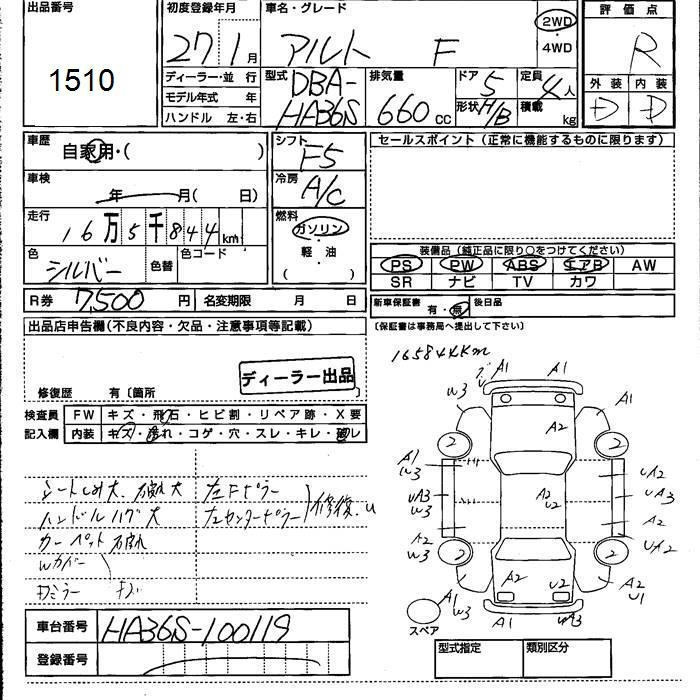 出品番号
1510
初度登録年月
27 1月
車名・グレード
アルト F
2WD
・4WD
評価点
R
外装 内装
D D
ディーラー・並行
モデル年式 年
ハンドル 左・右
型式
DBA-
HA36S
排気量
660 cc
ドア 5
形状 H/B
定員 4人
積載 kg
車歴
自家用・( )
車検
年 月( 日)
走行
16万5千844km
色 シルバー 色替 色コード
シフト
F5
冷房
A/C
燃料
ガソリン
・
軽油
( )
セールスポイント(正常に機能するものに限ります)
装備品(純正品に限り○をつけてください)
PS PW ABS エアB AW
SR ナビ TV カワ
R券 7,500円 名変期限 月 日
新車保証書 有・無 後日品
(保証書は事務局へ提出して下さい)
出品店申告欄(不良内容・欠品・注意事項等記載)
ディーラー出品
修復歴 有〔箇所 〕
検査員 FW キズ・飛石・ヒビ割・リペア跡・X要
記入欄 内装 キズ・汚れ・コゲ・穴・スレ・キレ・破レ
165844Km
シートしみ大、破れ大 左Fピラー
ハンドルハゲ大 左センターピラー 修復、u
カーペット破れ
Wカバー
Fミラー キズ
A1 A1
W3 u A1
2 A2 2
A1
W3 uA2
uA3 A2 uA3
W3 u2
A2 A2
W3 uA2
2 2
A2 u2 A2
A1 u1
W3 A1 uA3
スペア
車台番号 HA36S-100119
登録番号
型式指定 類別区分